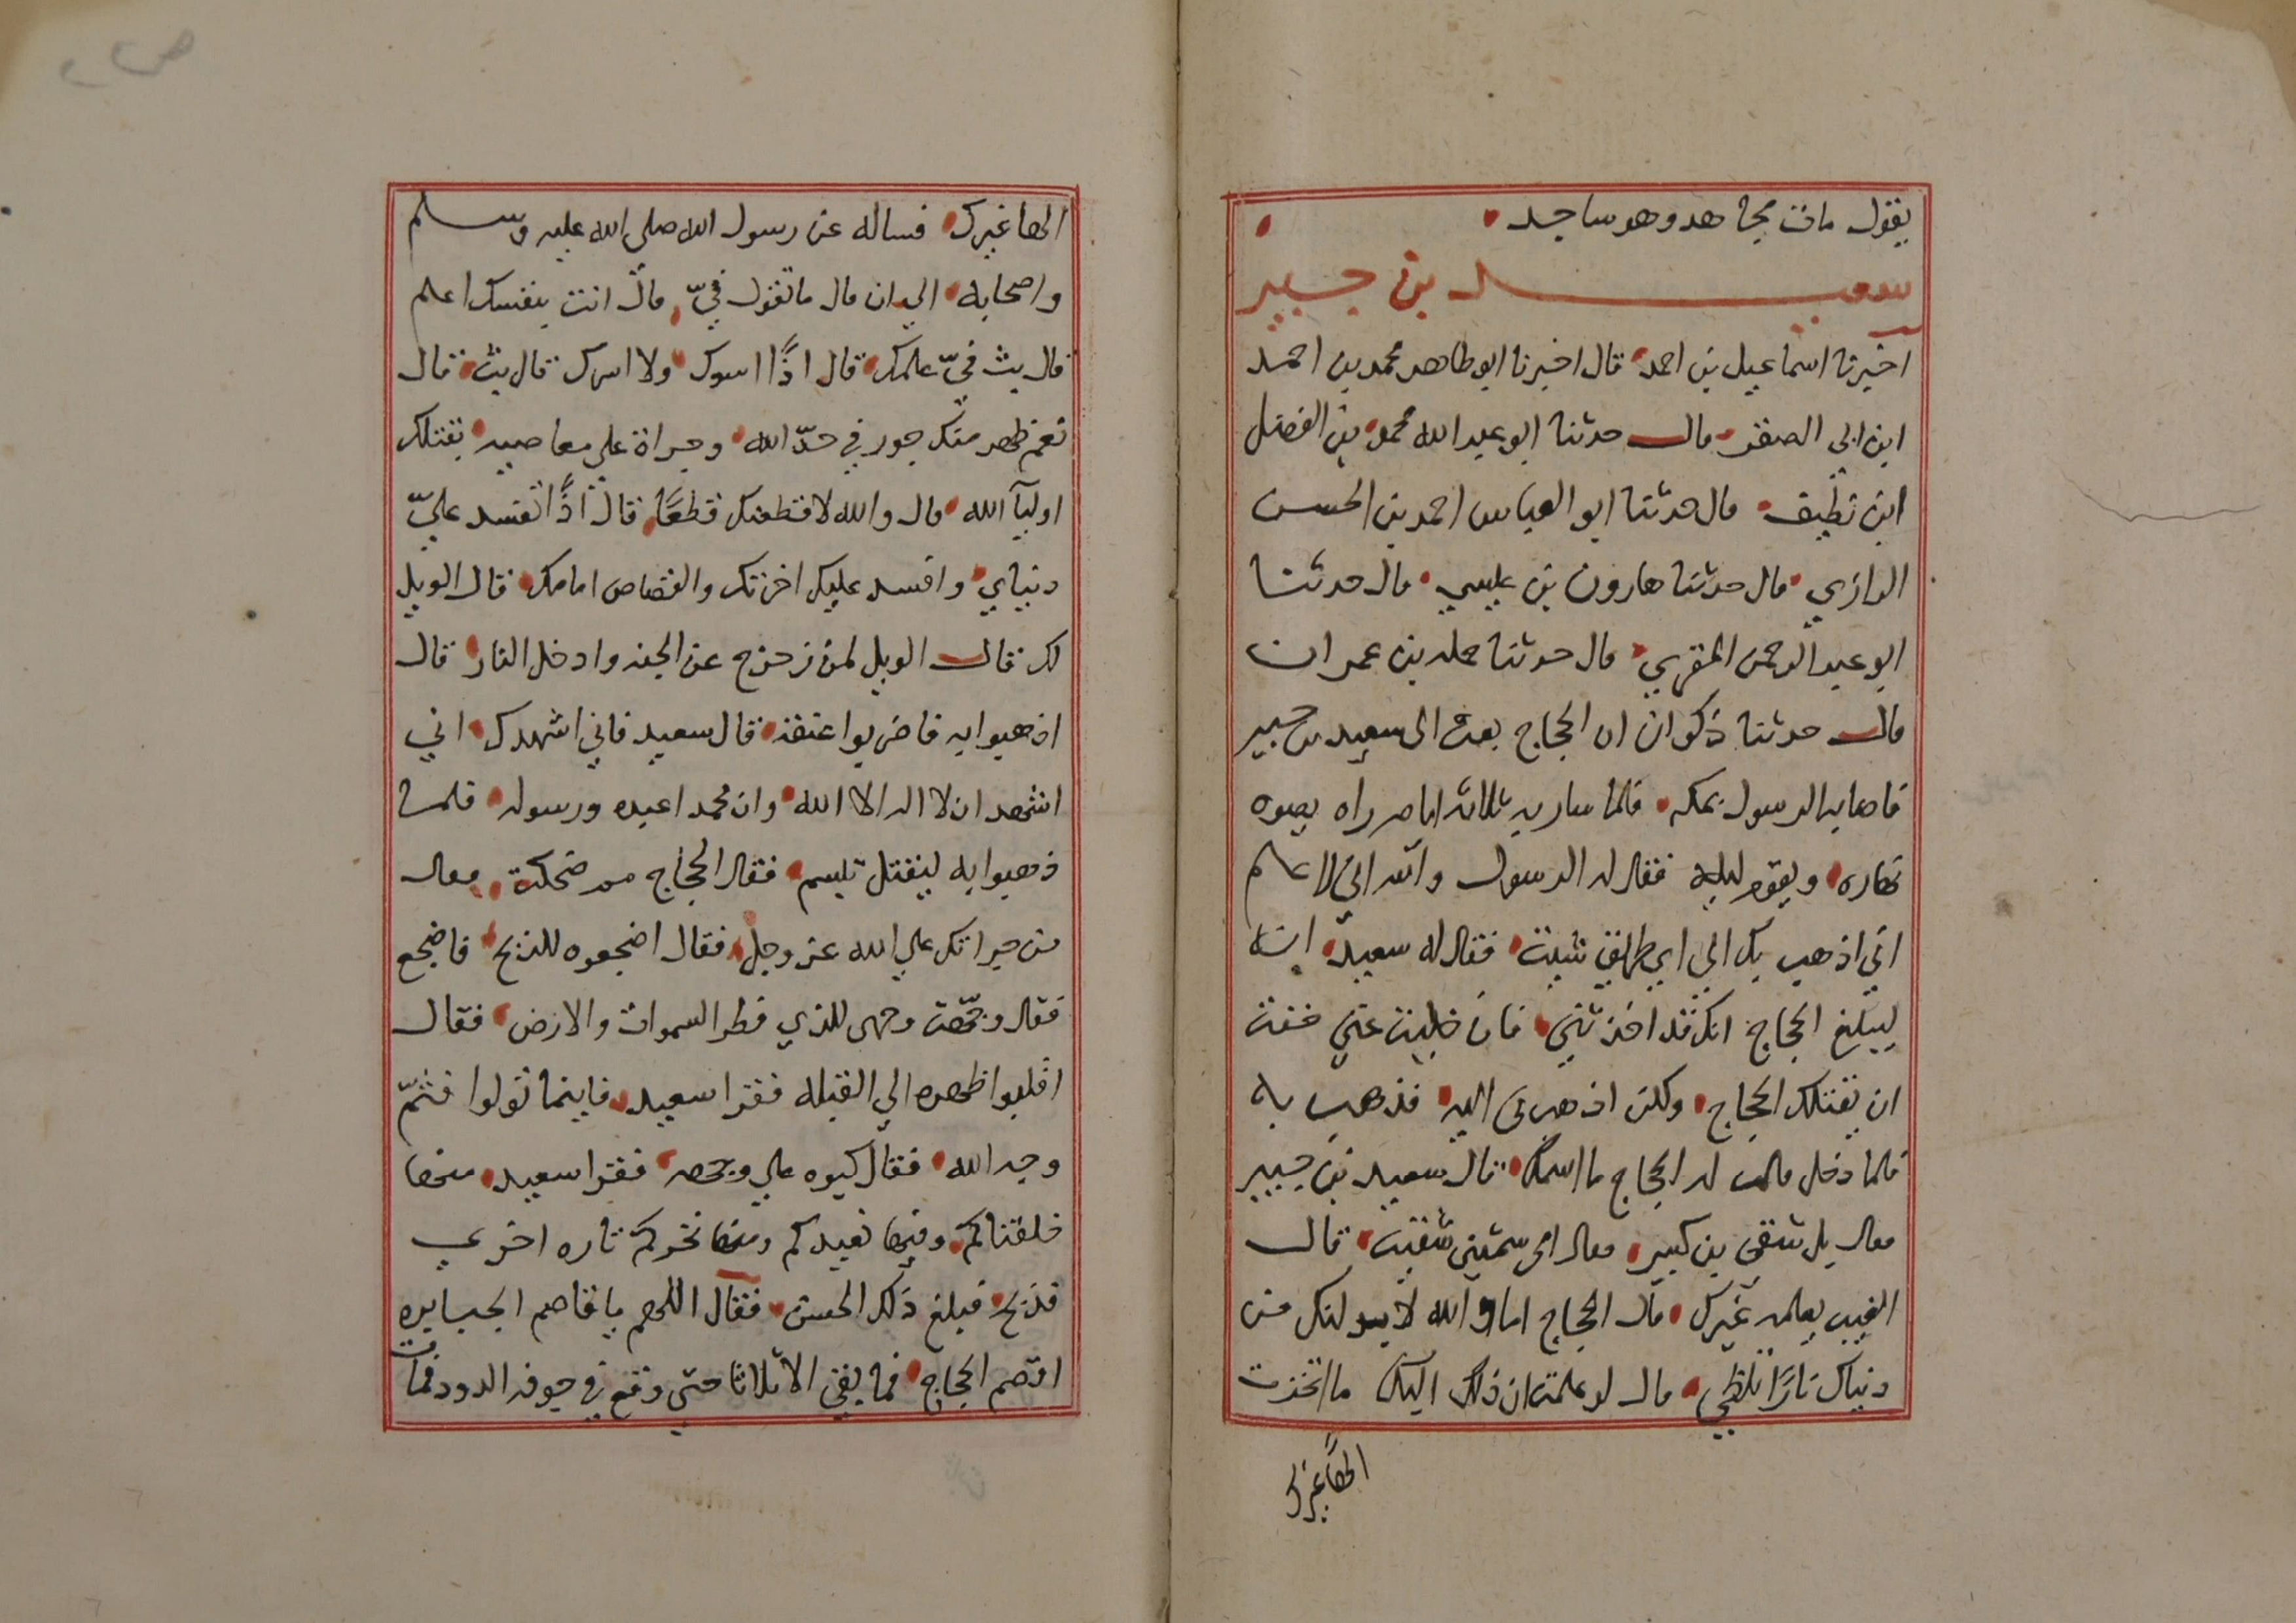 يقول مات مجاهد وهو ساجد
سعيد بن جبير
اخبرنا اسماعيل بن احمد قال اخبرنا ابو طاهر محمد بن احمد
ابن ابي الصقر قال حدثنا ابو عبد الله محمد بن الفضل
ابن نظيف قال حدثنا ابو العباس احمد بن الحسن
الرازي قال حدثنا هارون بن عيسي قال حدثنا
ابو عبد الرحمن المقري قال حدثنا حمله بن عمران
قال حدثنا ذكوان ان الحجاج بعث الى سعيد بن جبير
فاصابه الرسول بمكه فلما سار به ثلاثه ايام راه يصوم
نهاره ويقوم ليله فقال له الرسول والله اني لاعلم
اني اذهب بك الي اي طريق شيت فقال له سعيد انه
ليبلغ الحجاج انك قد اخذتني فان خليت عني خفت
ان يقتلك الحجاج ولكن اذهب بي اليه فذهب به
فلما دخل قال له الحجاج ما اسمك قال سعيد بن جبير
فقال بل شقي بن كسير فقال امي سمتني شقيت قال
الغيب يعلمه غيرك قال الحجاج اما والله لابدلنك من
دنياك نارًا تلظي قال لو علمت ان ذلك اليك ما اتخذت
الهًا غيرك
الها غيرك فساله عن رسول الله صلي الله عليه وسلم
واصحابه الي ان قال ما تقول فيّ قال انت بنفسك اعلم
قال بث فيّ علمك قال اذًا اسوك ولا اسرك قال بث قال
نعم ظهر منك جور في حدّ الله وجراة علي معاصيه بقتلك
اوليآ الله قال والله لاقطعنك قطعًا قال اذًا تفسد عليّ
دنياي وافسد عليك اخرتك والقصاص امامك قال الويل
لك قال الويل لمن زحزح عن الجنه وادخل النار قال
اذهبوا به فاضربوا عنقه قال سعيد فاني اشهدك اني
اشهد ان لا اله الا الله وان محمدا عبده ورسوله فلما
ذهبوا به ليقتل تبسم فقال الحجاج مم ضحكت فقال
من جراتك علي الله عز وجل فقال اضجعوه للذبح فاضجع
فقال وجّهت وجهي للذي فطر السموات والارض فقال
اقلبوا ظهره الي القبله فقرا سعيد فاينما تولوا فثمّ
وجه الله فقال كبوه علي وجهه فقرا سعيد منها
خلقناكم وفيها نعيدكم ومنها نخرجكم تاره اخري
فذبح فبلغ ذلك الحسن فقال اللهم يا قاصم الجبابره
اقصم الحجاج فما بقي الا ثلاثا حتي وقع في جوفه الدود فمات